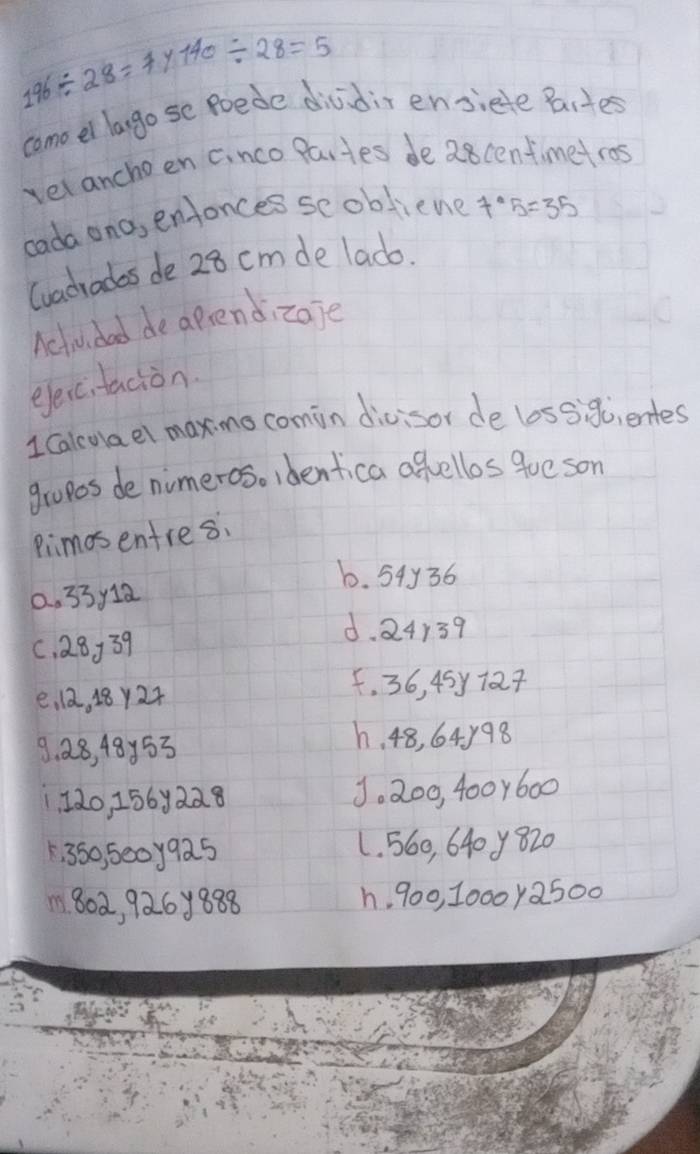 196 ÷ 28 = 7 y 140 ÷ 28 = 5
como el largo se poede dividir en siete Partes
y el ancho en cinco Partes de 28 centimetros
cada ona, entonces se obtiene 7·5=35
Cuadrados de 28 cm de lado.
Actividad de aprendizaje
ejercitación.
1 Calcula el maximo común divisor de los siguientes
grupos de números. identica aquellos que son
Primos entre si
a. 33 y 12 b. 54 y 36
c. 28 y 39 d. 24 y 39
e. 12, 18 y 27 f. 36, 45 y 127
g. 28, 48 y 53 h. 48, 64 y 98
i. 120, 156 y 228 J. 200, 400 y 600
k. 350, 500 y 925 l. 560, 640 y 820
m. 802, 926 y 888 n. 900, 1000 y 2500